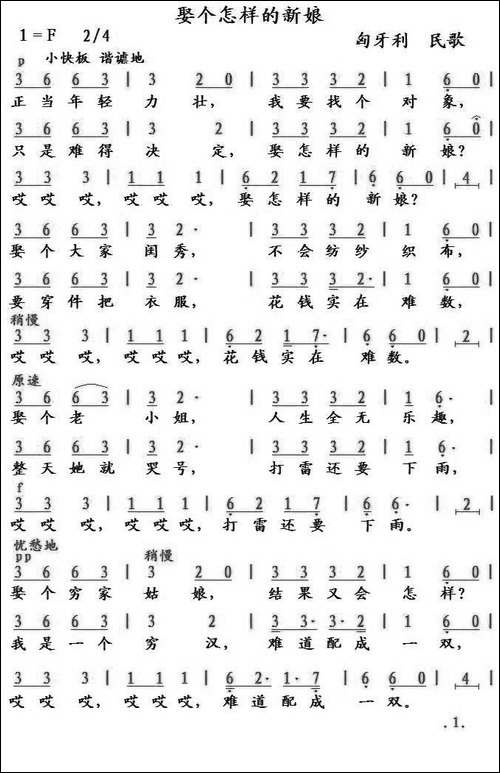 娶个怎样的新娘
1=F 2/4 匈牙利 民歌
p 小快板 谐谑地
3 6 6 3 | 3 2 0 | 3 3 3 2 | 1 6 0 |
正当年轻力壮，我要找个对象，
3 6 6 3 | 3 2 | 3 3 3 2 | 1 6 0 |
只是难得决定，娶怎样的新娘？
3 3 3 | 1 1 1 | 6 2 1 7 | 6 6 0 | 4 |
哎哎哎，哎哎哎，娶怎样的新娘？
3 6 6 3 | 3 2· | 3 3 3 2 | 1 6 0 |
娶个大家闺秀，不会纺纱织布，
3 6 6 3 | 3 2· | 3 3 3 2· | 1 6 0 |
要穿件把衣服，花钱实在难数，
稍慢
3 3 3 | 1 1 1 | 6 2 1 7· | 6 6 0 | 2 |
哎哎哎，哎哎哎，花钱实在难数。
原速
3 6 6 3 | 3 2· | 3 3 3 2 | 1 6· |
娶个老小姐，人生全无乐趣，
3 6 6 3 | 3 2· | 3 3 3 2 | 1 6· |
整天她就哭号，打雷还要下雨，
f
3 3 3 | 1 1 1 | 6 2 1 7 | 6 6· | 2 |
哎哎哎，哎哎哎，打雷还要下雨。
忧愁地
pp 稍慢
3 6 6 3 | 3 2 0 | 3 3 3 2 | 1 6 0 |
娶个穷家姑娘，结果又会怎样？
3 6 6 3 | 3 2 | 3 3· 3· 2 | 1 6 0 |
我是一个穷汉，难道配成一双，
3 3 3 | 1 1 1 | 6 2· 1· 7 | 6 6 0 | 4 |
哎哎哎，哎哎哎，难道配成一双。
.1.